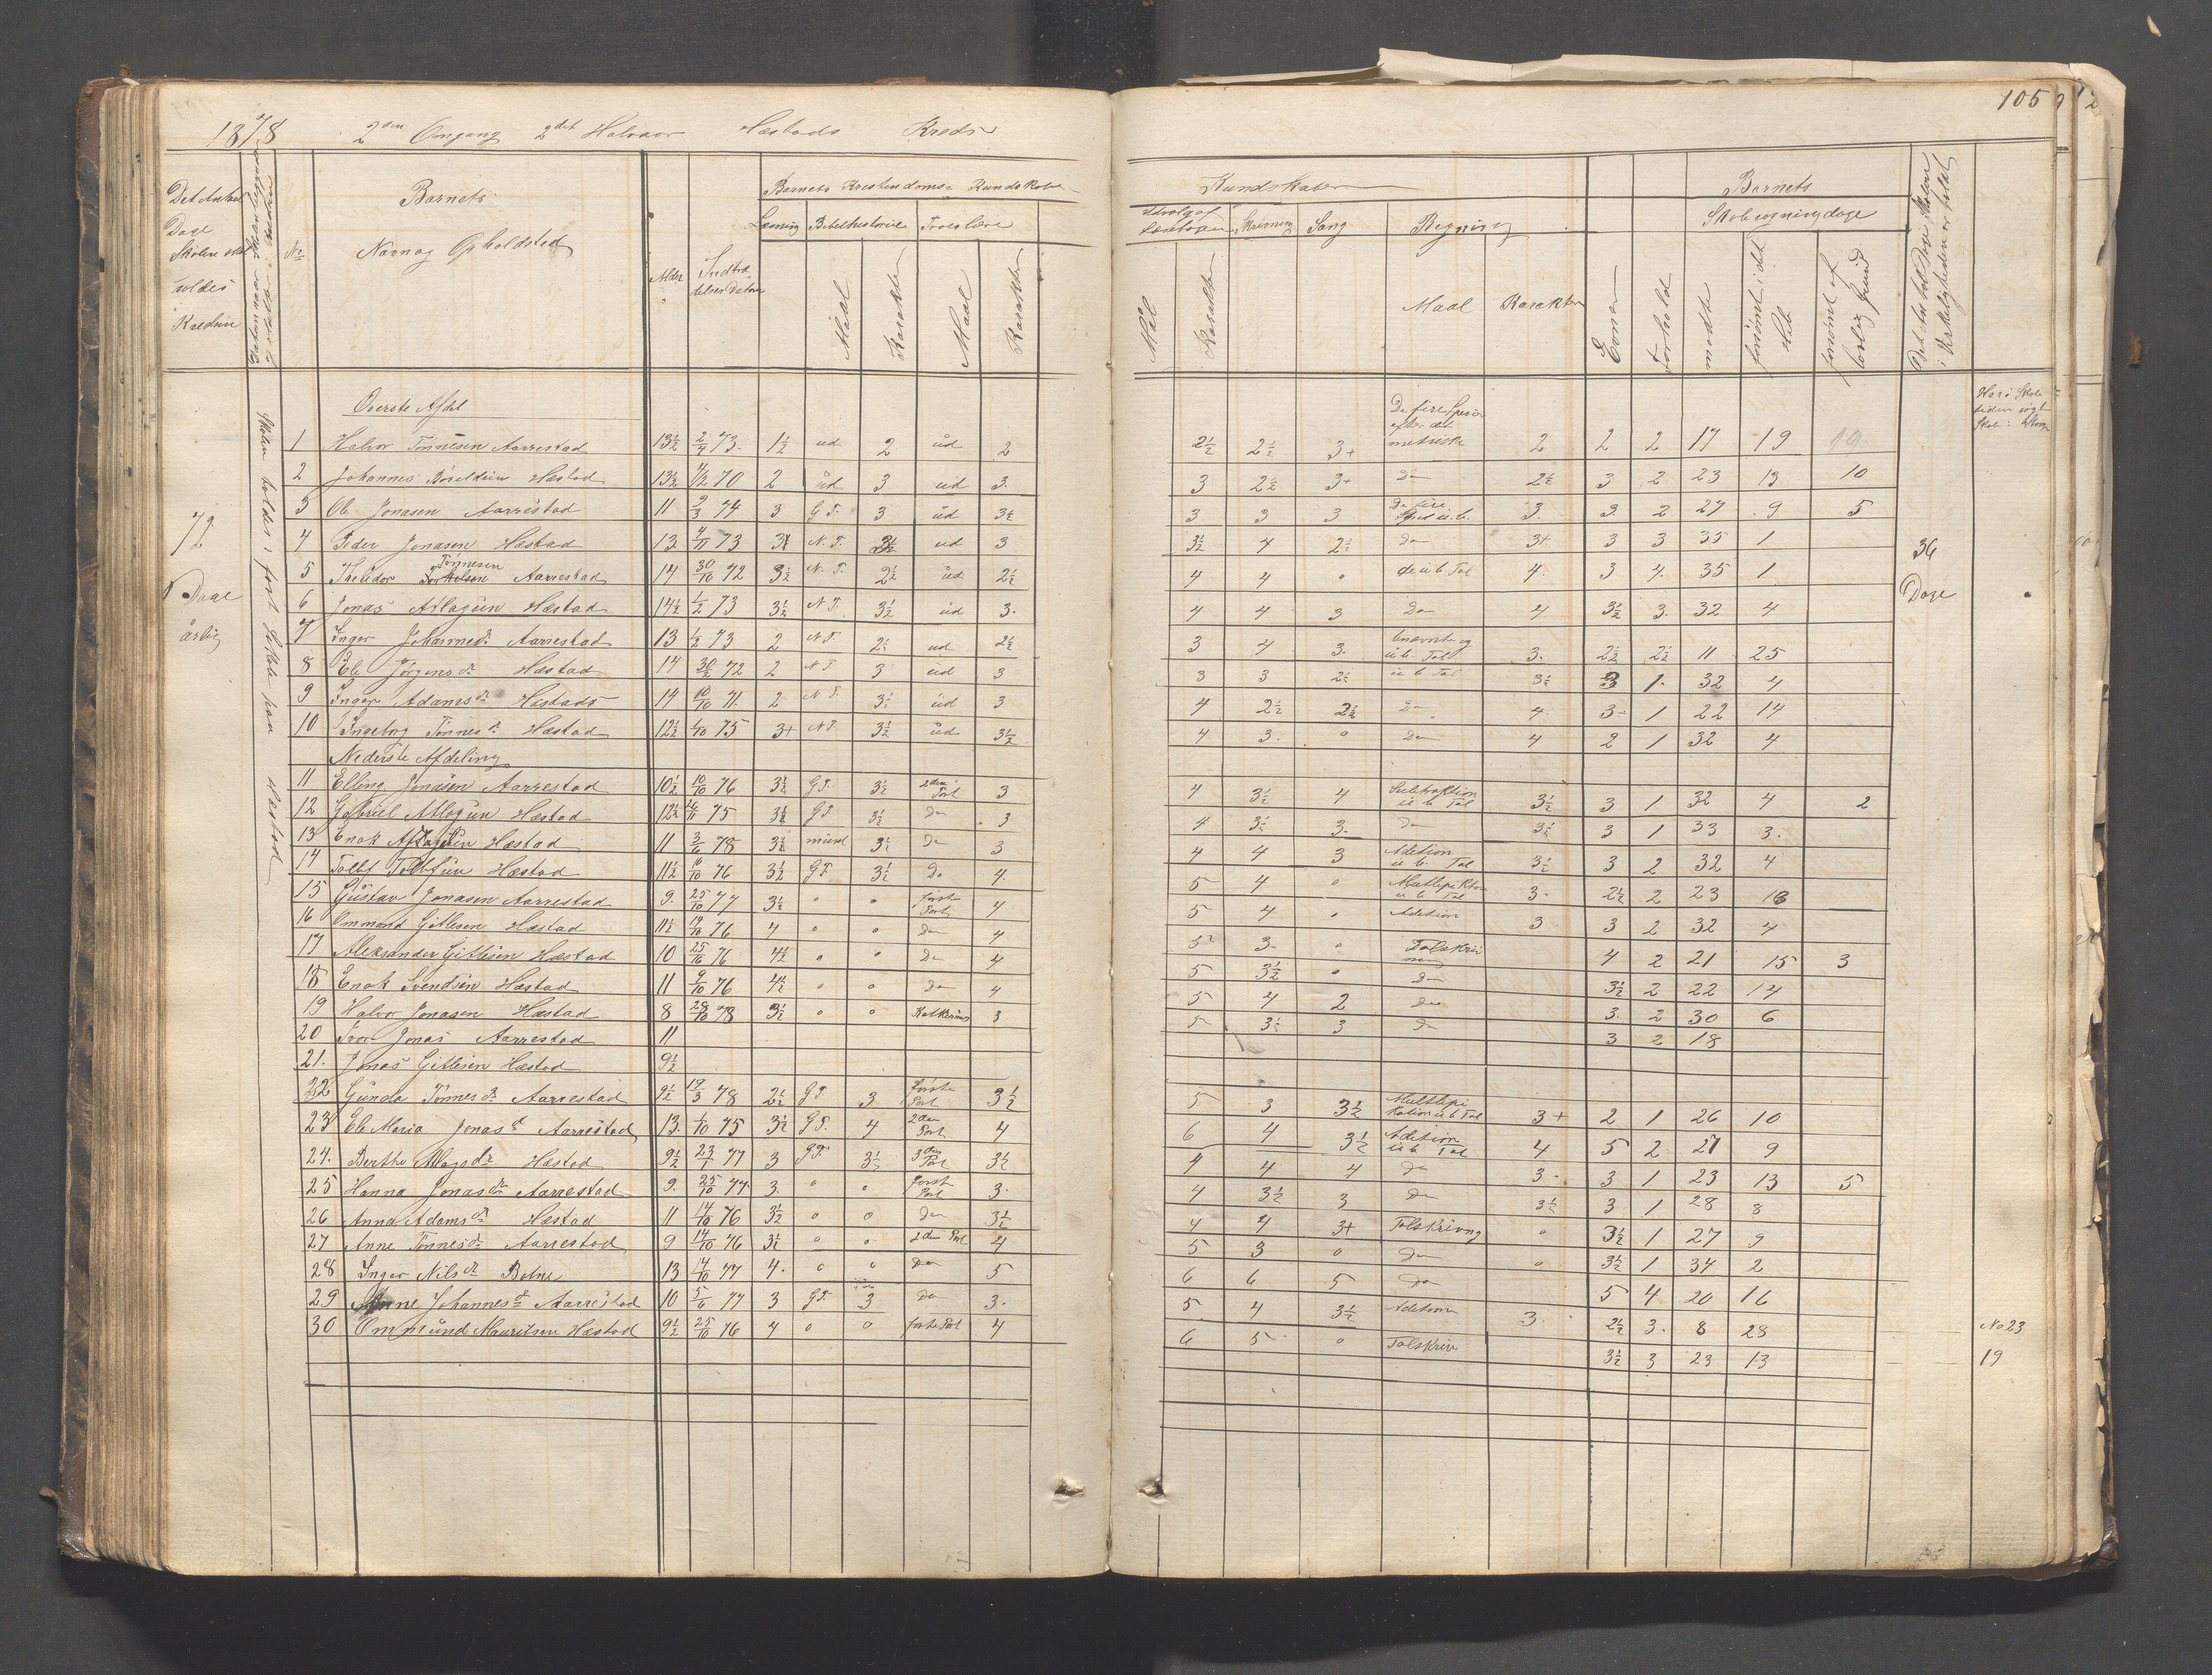 1878 2den Omgang 2det Halvaar Hæstads Kreds
105
Det Antal Dage Skolen skal holdes i Kredsen
No
Barnets Navn og Opholdsted
Alder
Indtrædelses Datum
Barnets Kristendoms Kundskaber
Læsning Bibelhistorie Troeslære
Maal Karakter Maal Karakter
Kundskaber
Udvalg af Læsebogen Skrivning Sang Regning
Maal Karakter Maal Karakter
Evner
Forhold
Barnets Skolesøgningsdage
mødte
forsømt i det Hele
forsømt af lovlig Grund
Det Antal Dage Skolen i Virkeligheden er holdt
72 Dage årlig
36 Dage
Øverste Afdel
1 Halvor Tönnesen Aarrestad 13½ 2/4 73. 1½ ud 2 ud 2 2½ 2½ 3+ De fire Specier efter det metriske 2 2 2 17 19 19
2 Johannes Hæstad 13½ 70 2 ud 3 ud 3. 3 2½ 3+ Do 2½ 3 2 23 13 10
3 Ole Jonasen Aarrestad 11 2/3 74 3 G.T. 3 ud 3½ 3 3 3 De fire 3. 3. 2 27 9 5
4 Peder Jonasen Hæstad 13 4/11 73 3½ N.T. 3½ ud 3 3½ 4 2½ Do 3+ 3 3 35 1
5 Theodor Tönnesen Aarrestad 14 30/10 72 3½ N.T. 2½ ud 2½ 4 4 0 de u b Tal 4. 3 4. 35 1
6 Jonas Atlagsen Hæstad 14½ 1/2 73 3½ N T. 3½ ud 3. 4 4 3 Do 4 3½ 3. 32 4
7 Inger Johannesdr Aarrestad 13 1/2 73 2 N T. 2½ ud 2½ 3 4 3. u b. Tal 3. 2½ 2½ 11 25
8 Ele Jörgensdr Hæstad 14 30/2 72 2 N T 3 ud 3 3 3 2½ u b Tal 3½ 3 1. 32 4
9 Inger Adamsdr Hæstads 14 10/10 71. 2 N T. 3½ ud 3 4 2½ 2½ Do 4 3 1 22 14
10 Ingeborg Tönnesdr Hæstad 12½ 1/10 75 3+ N T. 3½ ud 3½ 4 3. 0 Do 4 2 1 32 4
Nederste Afdeling
11 Elling Jonasen Aarrestad 10½ 10/10 76 3½ G T. 3½ 2den Part 3 4 3½ 4 Subtraktion u b Tal 3½ 3 1 32 4 2
12 Gabriel Atlagsen Hæstad 12½ 26/11 75 3½ G T. 3½ Do 3 4 3½ 3. Do 3½ 3 1 33 3.
13 Enok Atlagsen Hæstad 11 3/6 78 3½ mund 3½ Do 3 4 4 3 Adition u b. Tal 3½ 3 2 32 4
14 Tollef Hæstad 11½ 10/10 76 3½ G T. 3½ Do 4. 5 4 0 u b Tal 3. 2½ 2 23 13
15 Gustav Jonasen Aarrestad 9. 25/10 77 3½ 0 0 förste Part 4 5 4 0 Adition 3 3 2 32 4
16 Ommond Gitlesen Hæstad 11½ 76 4 0 0 Do 4 5 3. 0 Talskriv 4 2 21 15 3
17 Aleksander Gitlesen Hæstad 10 25/10 76 4½ 0 0 Do 4 5 3½ 0 Do 3½ 2 22 14
18 Enok Svendsen Hæstad 11 9/10 76 4½ 0 0 Do 4 5 4 2 Do 3. 2 30 6
19 Halvor Jonasen Hæstad 8 28/10 78 3½ 0 0 3 5 3½ 3 Do 3 2 18
20 Ivar Jonas Aarrestad 11
21. Jonas Gitlesen Hæstad 9½
22 Gunda Tönnesdr Aarrestad 9½ 19/3 78 2½ G T. 3 förste Part 3½ 5 3 3½ Multlepikation u b Tal 3+ 2 1 26 10
23 Ele Maria Jonasdr Aarrestad 13. 1/10 75 3½ G T. 4 2den Part 4 6 4 3½ Adition u b Tal 4 5 2 27 9
24. Berthe Atlagsdr Hæstad 9½ 23/1 77 3 G T. 3½ 3die Part 3½ 4 4 4 Do 3. 3 1 23 13 5
25 Hanna Jonasdr Aarrestad 9. 25/10 77 3. 0 0 förste Part 3. 4 3½ 3 Do 3½ 3 1 28 8
26 Anna Adamsdr Hæstad 11 14/10 76 3½ 0 0 Do 3½ 4 4 3+ Talskrivng 0 3½ 1 27 9
27 Anne Tönnesdr Aarrestad 9 14/10 76 3½ 0 0 2den Part 4 5 3 0 Do 0 3½ 1 34 2
28 Inger Nilsdr Botne 13 14/10 77 4. 0 0 Do 5 6 6 5 Do 5 4 20 16
29 Anne Johannesdr Aarrestad 10 5/6 77 3 G T. 3 Do 3. 5 4 3½ Adition 3. 2½ 3. 8 28 No 23
30 Ommund Mauritsen Hæstad 9½ 25/10 76 4 0 0 förste Part 4 6 5 0 Talskriv 3½ 3 23 13 19